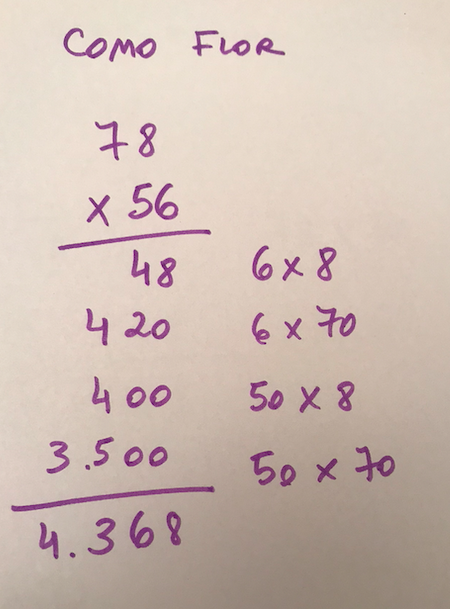 COMO FLOR
78
x 56
48 6 x 8
420 6 x 70
400 50 x 8
3.500 50 x 70
4.368